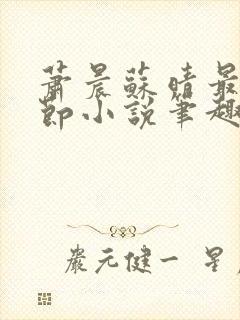 蕭晨蘇晴最
節小說筆趣
嚴元健一 星